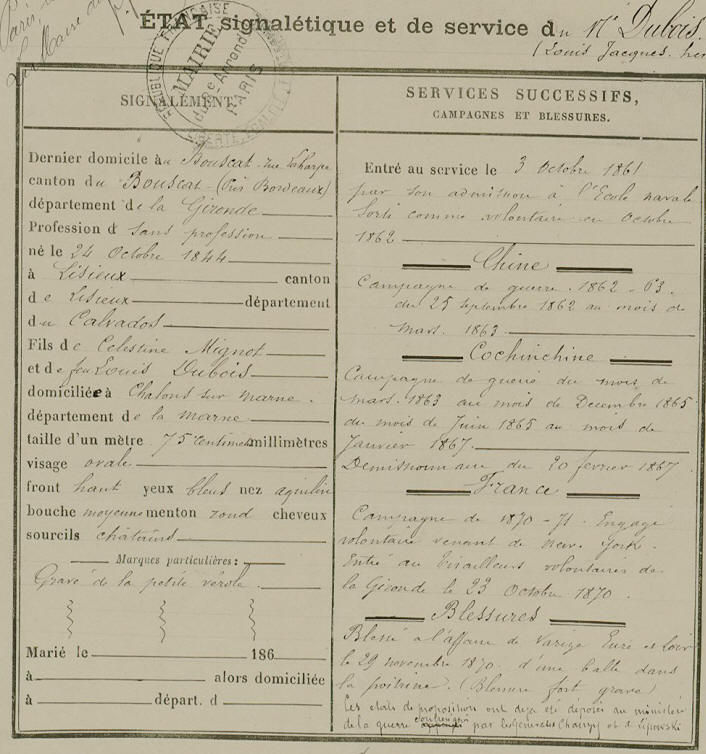 Paris
Le Maire du
RÉPUBLIQUE FRANÇAISE
MAIRIE
du 9e Arrondt
PARIS
ÉTAT signalétique et de service du Mr Dubois
(Louis Jacques
SIGNALEMENT.
Dernier domicile au Bouscat - rue
canton du Bouscat - (Près Bordeaux)
département de la Gironde
Profession d sans profession
né le 24 Octobre 1844
à Lisieux canton
de Lisieux département
du Calvados
Fils de Celestine Mignot
et de feu Louis Dubois
domiciliée à Chalons sur Marne.
département de la Marne
taille d'un mètre 75 centimes millimètres
visage ovale
front haut yeux bleus nez aquilin
bouche moyenne menton rond cheveux
sourcils châtains
Marques particulières :
Gravé de la petite vérole
Marié le 186
à alors domiciliée
à départ. d
SERVICES SUCCESSIFS,
CAMPAGNES ET BLESSURES.
Entré au service le 3 Octobre 1861
par son admission à l'Ecole navale
Sorti comme volontaire en Octobre
1862
Chine
Campagne de guerre. 1862-63.
du 25 septembre 1862 au mois de
mars. 1863
Cochinchine
Campagne de guerre du mois de
mars. 1863 au mois de Decembre 1865
du mois de Juin 1865 au mois de
Janvier 1867.
Demissionnaire du 20 fevrier 1867
France
Campagne de 1870-71. Engagé
volontaire venant de New York.
Entré au tirailleurs volontaires de
la Gironde le 23 Octobre 1870.
Blessures
Blessé a l'affaire de Varize Eure et Loir
le 29 novembre 1870. d'une balle dans
la poitrine. (Blessure fort grave)
Les etats de proposition ont deja été deposés au ministère
de la guerre par les generaux Chanzy et de Lipowski